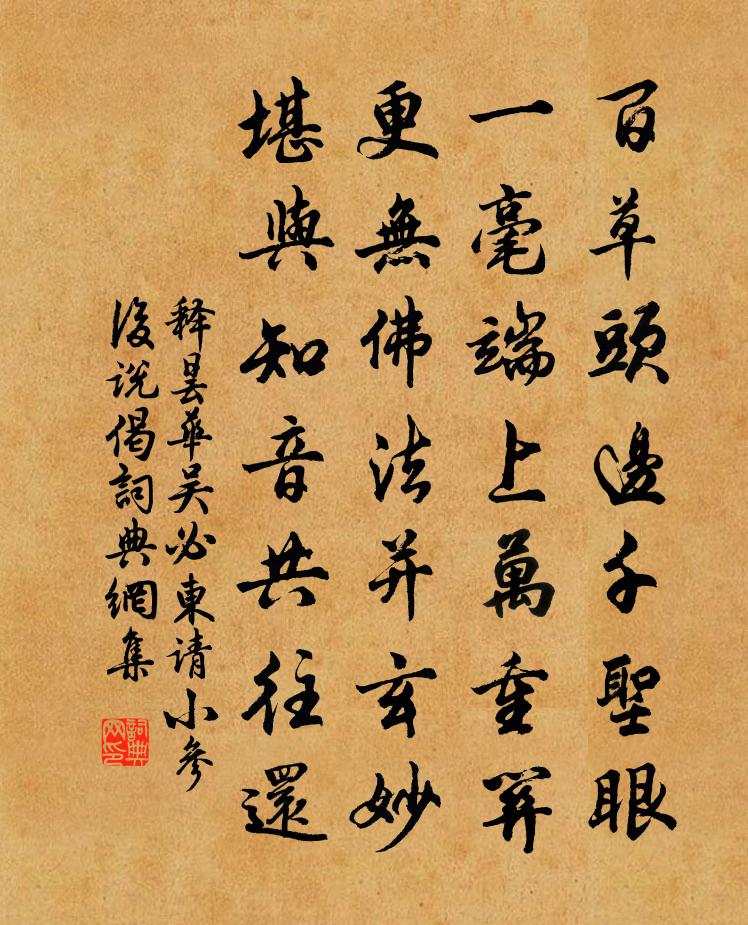 百草頭邊千聖眼
一毫端上萬重關
更無佛法并玄妙
堪與知音共往還
释曇華吴必東请小參
後说偈詞典網集
詞典网印